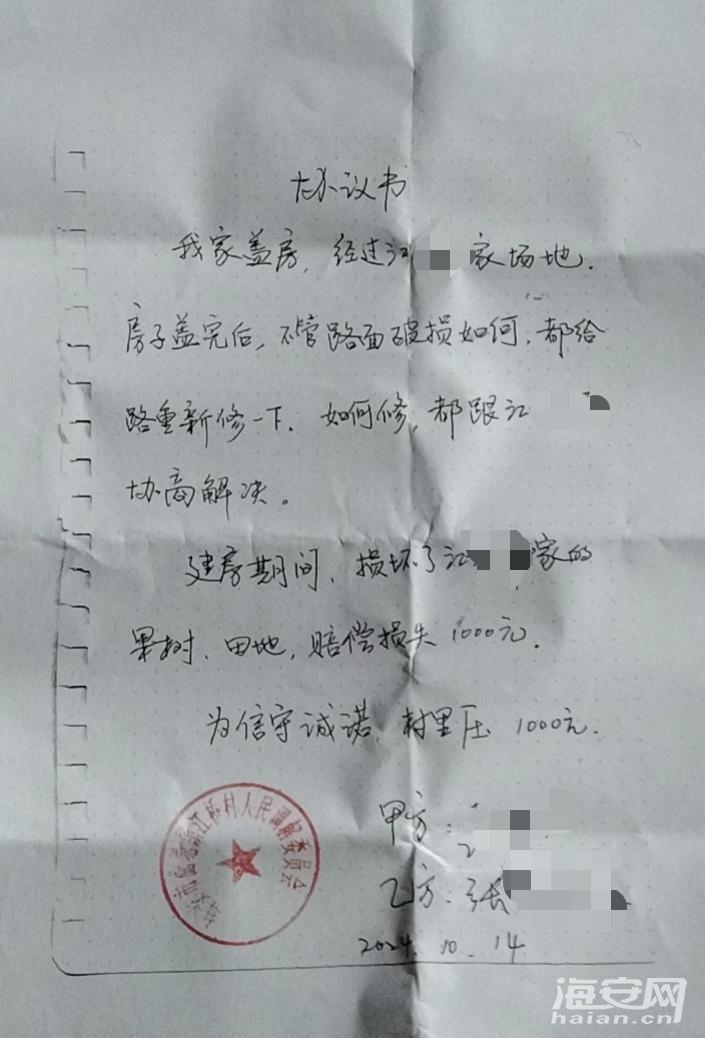 协议书
我家盖房，经过江 家场地．
房子盖完后，不管路面破损如何，都给
路重新修一下．如何修，都跟江
协商解决。
建房期间，损坏了江 家的
果树、田地，赔偿损失1000元．
为信守诚诺，村里压1000元．
江桥村人民调解委员会
甲方：
乙方：张
2024.10.14
海安网
haian.cn